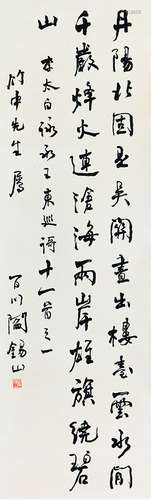 丹陽北固是吳關畫出樓臺雲水間
千巖烽火連滄海兩岸旌旗繞碧
山 李太白詠永王東巡謌十一首之一
竹申先生屬
百川閻錫山